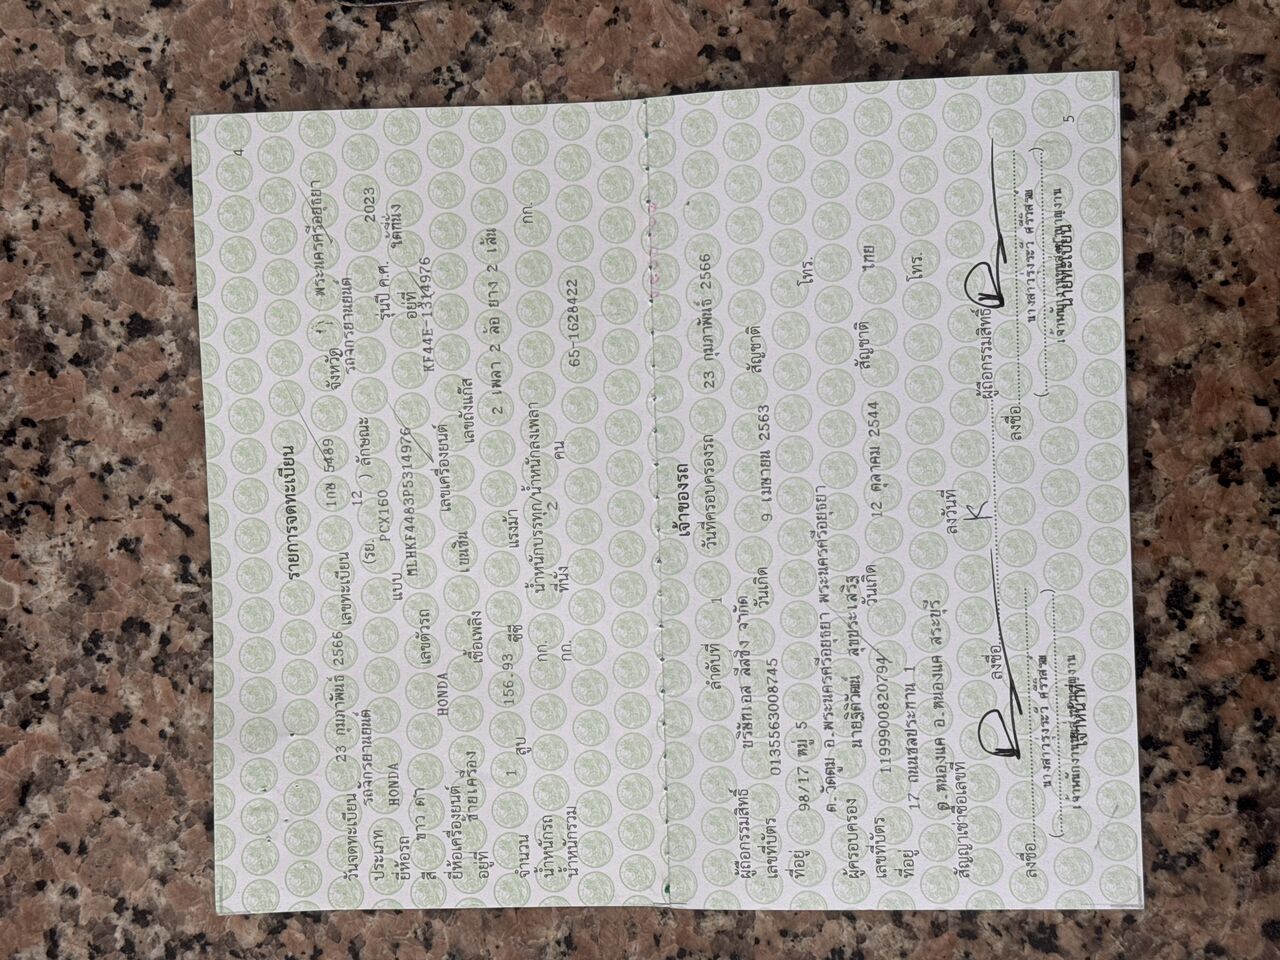 4
รายการจดทะเบียน
วันจดทะเบียน 23 กุมภาพันธ์ 2566 เลขทะเบียน 1กษ 5489 จังหวัด พระนครศรีอยุธยา
ประเภท รถจักรยานยนต์ (รย. 12 ) ลักษณะ รถจักรยานยนต์
ยี่ห้อรถ HONDA แบบ PCX160 รุ่นปี ค.ศ. 2023
สี ขาว ดำ เลขตัวรถ MLHKF4483P5314976 อยู่ที่ ใต้ที่นั่ง
ยี่ห้อเครื่องยนต์ HONDA เลขเครื่องยนต์ KF44E-1314976
อยู่ที่ ซ้ายเครื่อง เชื้อเพลิง เบนซิน เลขถังแก๊ส
จำนวน 1 สูบ 156.93 ซีซี แรงม้า 2 เพลา 2 ล้อ ยาง 2 เส้น
น้ำหนักรถ กก. น้ำหนักบรรทุก/น้ำหนักลงเพลา กก.
น้ำหนักรวม กก. ที่นั่ง 2 คน 65-1628422
5
เจ้าของรถ
ลำดับที่ 1 วันที่ครอบครองรถ 23 กุมภาพันธ์ 2566
ผู้ถือกรรมสิทธิ์ บริษัทเอส ลีสซิ่ง จำกัด
เลขที่บัตร 0135563008745 วันเกิด 9 เมษายน 2563 สัญชาติ
ที่อยู่ 98/17 หมู่ 5 โทร.
ต.วัดตูม อ.พระนครศรีอยุธยา พระนครศรีอยุธยา
ผู้ครอบครอง นายฐิติวัฒน์ สุขประเสริฐ
เลขที่บัตร 1199900820794 วันเกิด 12 ตุลาคม 2544 สัญชาติ ไทย
ที่อยู่ 17 ถนนชลประทาน 1 โทร.
ต.หนองแค อ.หนองแค สระบุรี
สัญญาเช่าซื้อเลขที่ ลงวันที่
ลงชื่อ ผู้ถือกรรมสิทธิ์
ลงชื่อ ลงชื่อ